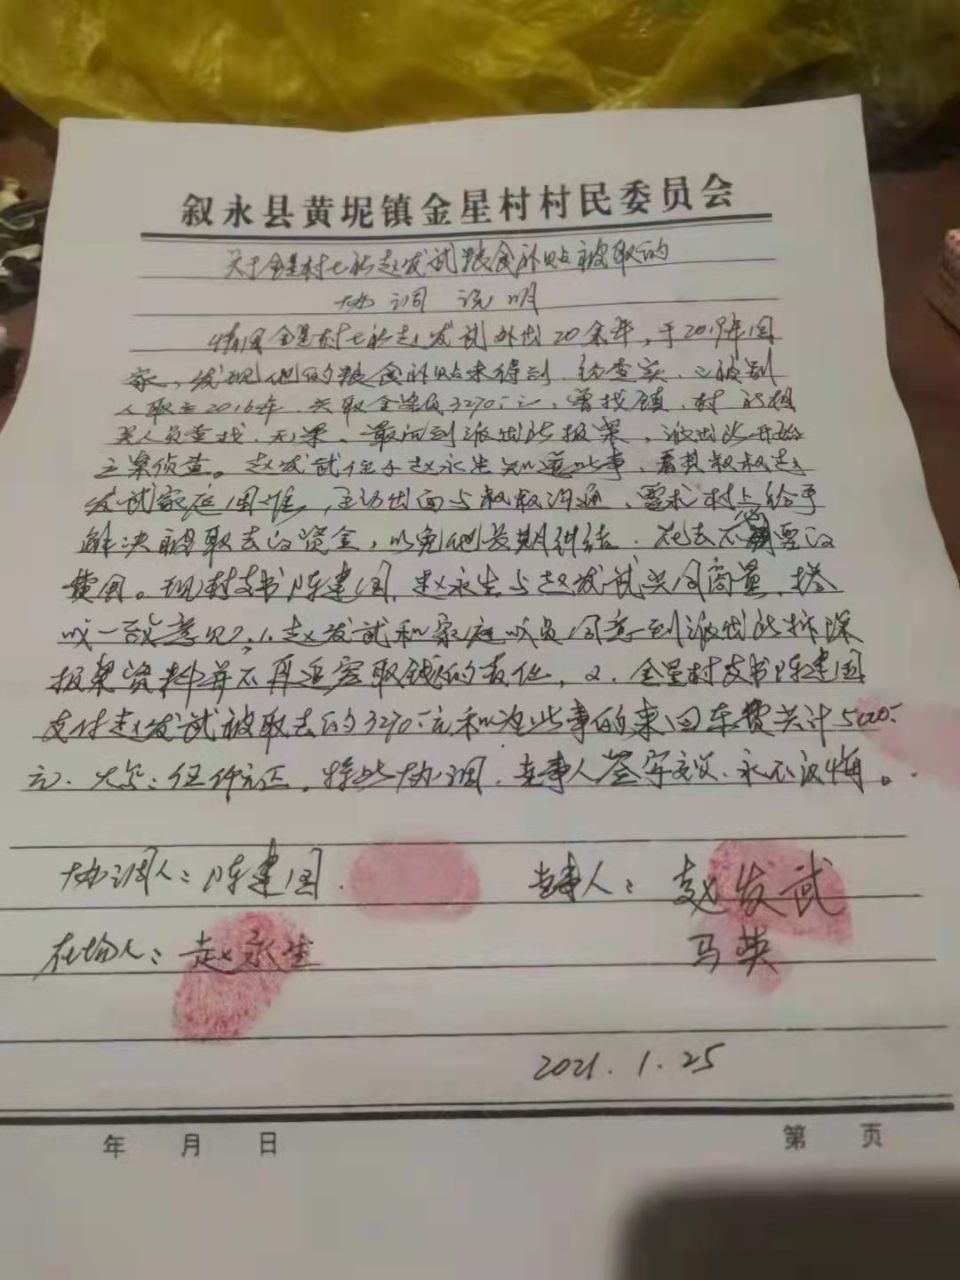 叙永县黄坭镇金星村村民委员会
关于金星村七社赵发武粮食补贴被取的
协调说明
情因金星村七社赵发武外出20余年，于2019年回
家，发现他的粮食补贴未得到，经查实，已被别
人取至2016年，共取金额3270元，曾找镇、村的相
关人员查找，无果。最后到派出所报案，派出所开始
立案侦查。赵发武侄子赵永生知道此事，看其叔叔赵
发武家庭困难，主动出面与叔叔沟通，要求村上给予
解决被取去的资金，以免他长期纠结，花去不必要的
费用。现村支书陈建国，赵永生与赵发武共同商量，搭
成一致意见，1.赵发武和家庭成员同意到派出所拆除
报案资料并不再追究取钱的责任，2.金星村支书陈建国
支付赵发武被取去的3270元和为此事的来回车费共计5000
元，大写：伍仟元正。特此协调，当事人签字生效，永不议悔。
协调人：陈建国
当事人：赵发武
在场人：赵永生
马英
2021.1.25
年 月 日
第 页